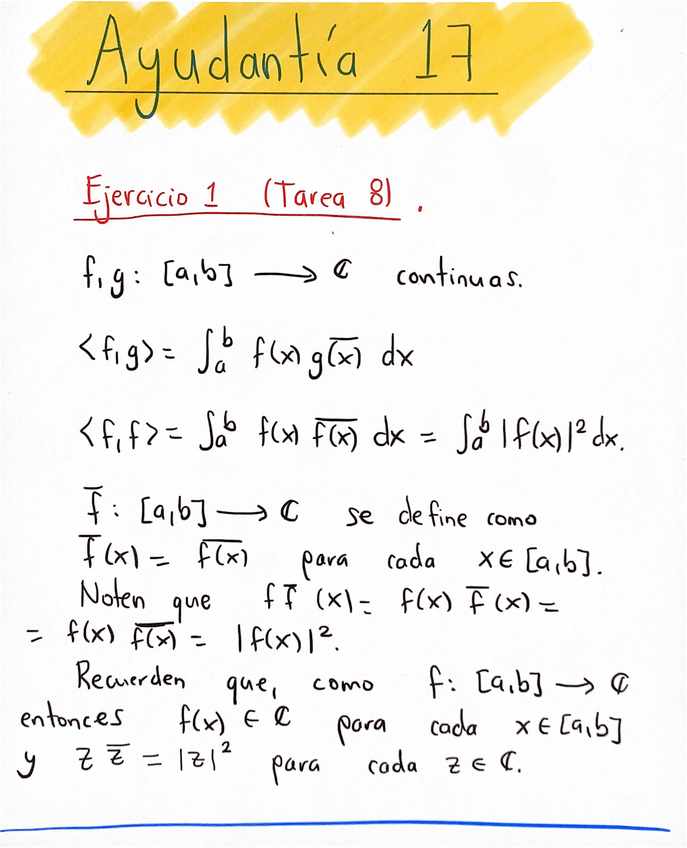 Ayudantía 17
Ejercicio 1 (Tarea 8).
f,g: [a,b] ⟶ ℂ continuas.
<f,g> = ∫ₐᵇ f(x) g(x̅) dx
<f,f> = ∫ₐᵇ f(x) \overline{f(x)} dx = ∫ₐᵇ |f(x)|² dx.
f̅: [a,b] ⟶ ℂ se define como
f̅(x) = \overline{f(x)} para cada x ∈ [a,b].
Noten que f f̅ (x) = f(x) f̅(x) =
= f(x) \overline{f(x)} = |f(x)|².
Recuerden que, como f: [a,b] ⟶ ℂ
entonces f(x) ∈ ℂ para cada x ∈ [a,b]
y z z̅ = |z|² para cada z ∈ ℂ.